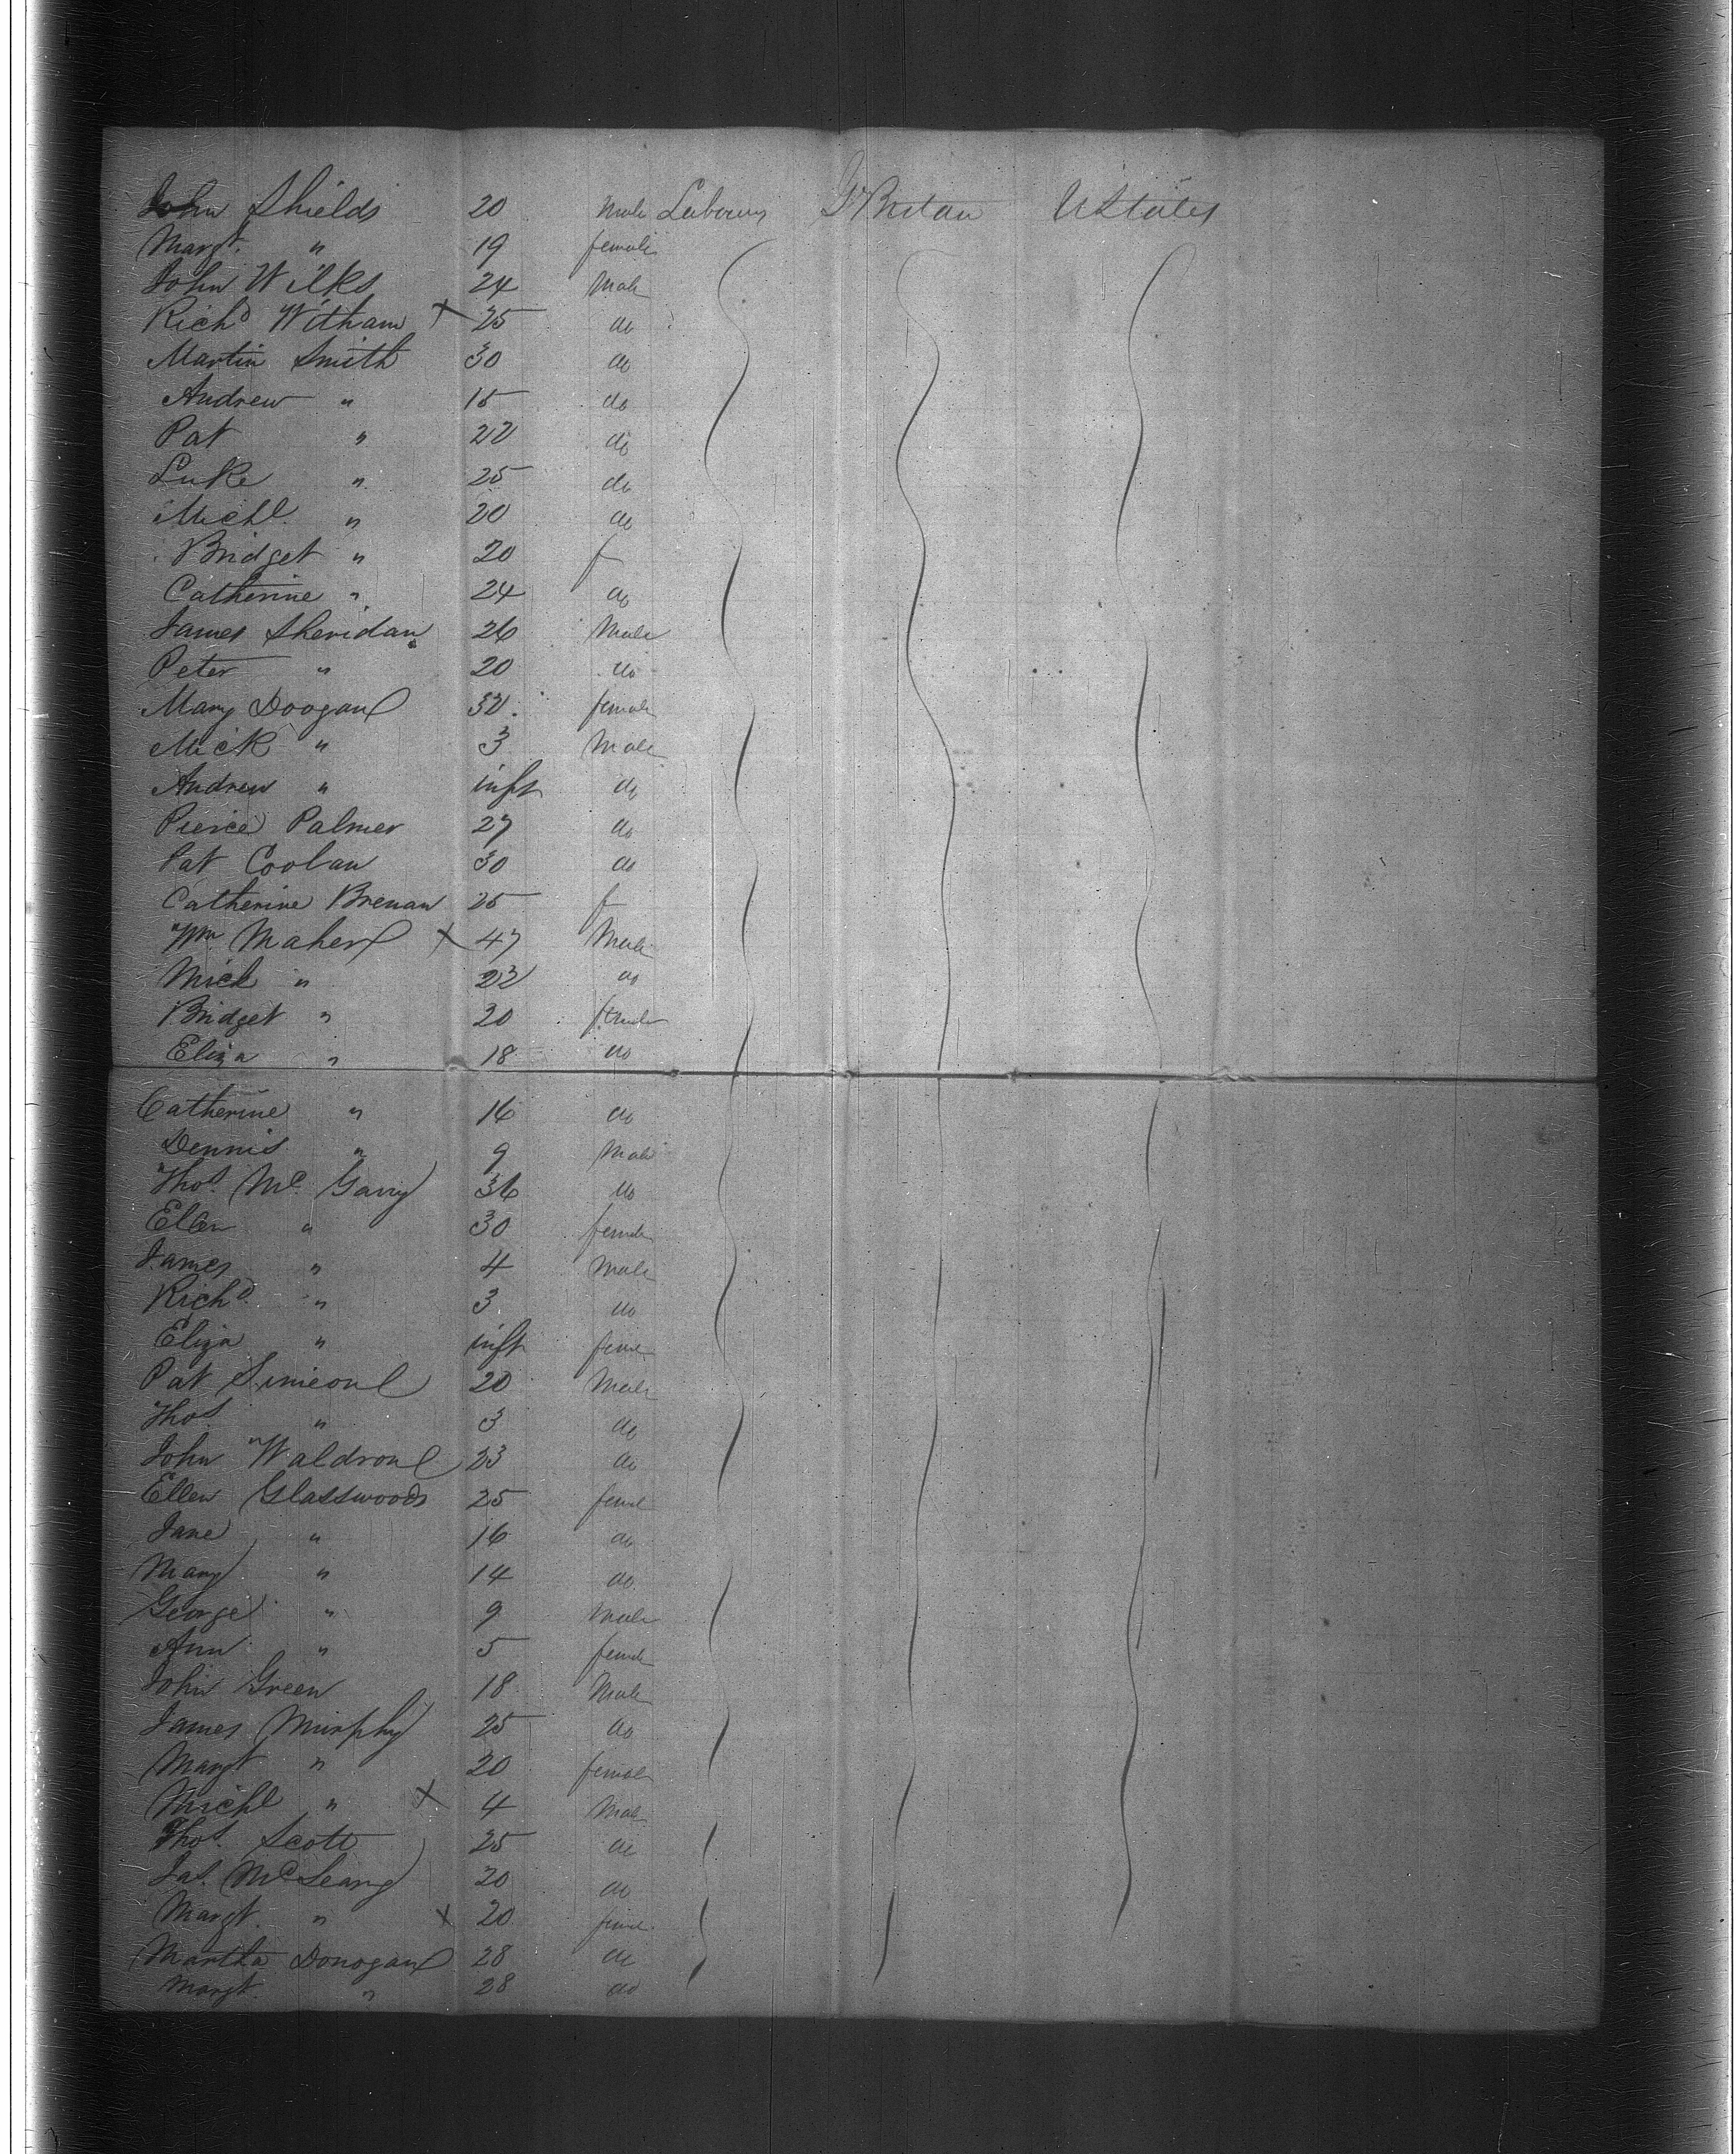 John Shields 20 Male Labourer Gt Britan U States
Margt. " 19 female
John Wilks 24 Male
Richd Witham X 25 do
Martin Smith 30 do
Andrew " 15 do
Pat " 22 do
Luke " 25 do
Michl. " 20 do
Bridget " 20 f
Catherine " 24 do
James Sheridan 26 Male
Peter " 20 do
Mary Doogan 32 female
Mick " 3 Male
Andrew " inft do
Pierce Palmer 27 do
Pat Coolan 30 do
Catherine Brenan 25 f
Wm Maher X 47 Male
Mick " 22 do
Bridget " 20 female
Eliza " 18 do
Catherine " 16 do
Dennis " 9 Male
Thos. Mc. Garry 36 do
Ellen " 30 female
James " 4 Male
Richd. " 3 do
Eliza " inft femle
Pat Simeon 20 Male
Thos. " 3 do
John Waldron 23 do
Ellen Glasswoods 25 feml
Jane " 16 do
Mary " 14 do
George " 9 Male
Ann " 5 femle
John Green 18 Male
James Murphy 25 do
Margt " 20 female
Michl " X 4 Male
Thos. Scott 25 do
Jas. McLeary 20 do
Margt. " X 20 feml
Martha Donogan 28 do
Margt. " 28 do